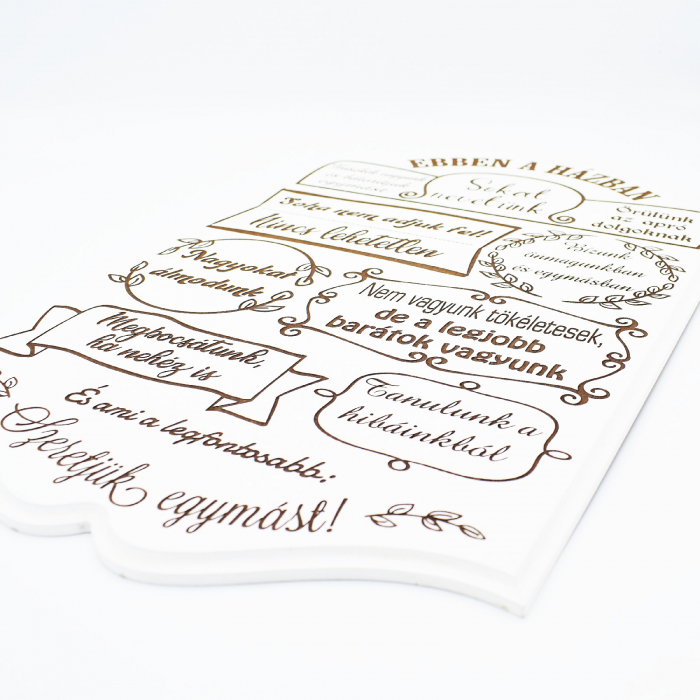 EBBEN A HÁZBAN
egymást
Sokat
nevetünk
Örülünk
az apró
dolgoknak
Soha nem adjuk fel!
Nincs lehetetlen
Bízunk
önmagunkban
és egymásban
Nagyokat
álmodunk
Nem vagyunk tökéletesek,
de a legjobb
barátok vagyunk
Megbocsátunk,
ha nehéz is
Tanulunk a
hibáinkból
És ami a legfontosabb:
Szeretjük egymást!